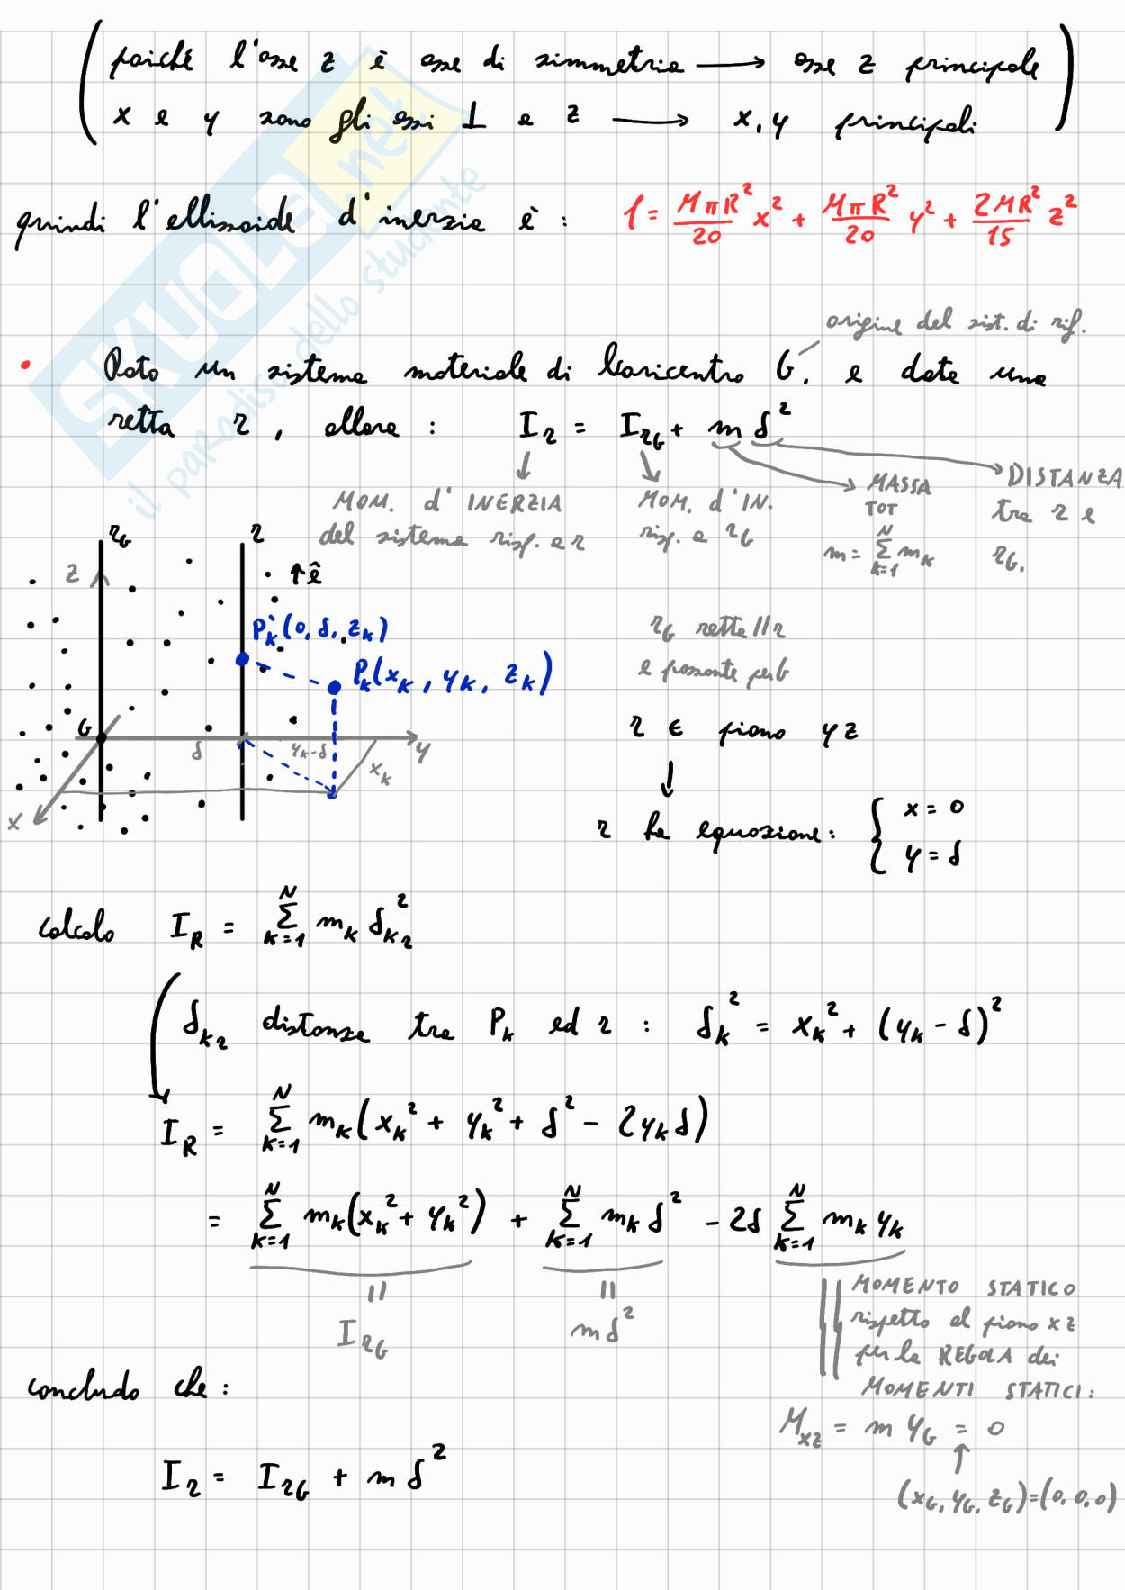 poiché l'asse z è asse di simmetria → asse z principale
x e y sono gli assi ⊥ a z → x, y principali
quindi l'ellissoide d'inerzia è : 1 = MπR²/20 x² + MπR²/20 y² + 2MR²/15 z²
origine del sist. di rif.
• Dato un sistema materiale di baricentro G, e data una
retta r, allora : I_r = I_rG + m δ²
MOM. d'INERZIA
del sistema risp. a r
MOM. d'IN.
risp. a r_G
MASSA
TOT
m = Σ_{k=1}^{N} m_k
DISTANZA
tra r e
r_G.
r_G r
z ê
P_k^*(0, δ, z_k)
P_k(x_k, y_k, z_k)
G δ y_k-δ x_k y
x
r_G retta // r
e passante per G
r ∈ piano yz
↓
r ha equazione: { x = 0
y = δ
calcolo I_R = Σ_{k=1}^{N} m_k δ_kr²
δ_kr distanza tra P_k ed r : δ_k² = x_k² + (y_k - δ)²
I_R = Σ_{k=1}^{N} m_k(x_k² + y_k² + δ² - 2y_kδ)
= Σ_{k=1}^{N} m_k(x_k² + y_k²) + Σ_{k=1}^{N} m_k δ² - 2δ Σ_{k=1}^{N} m_k y_k
I_rG
m δ²
MOMENTO STATICO
rispetto al piano xz
per la REGOLA dei
MOMENTI STATICI:
M_xz = m y_G = 0
(x_G, y_G, z_G)=(0,0,0)
concludo che :
I_r = I_rG + m δ²
SKUOLA.net
il paradiso dello studente